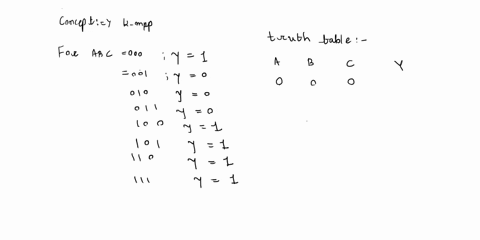 Concept:- k-map
For ABC = 000 ; Y = 1
= 001 ; Y = 0
010 Y = 0
011 Y = 0
100 Y = 1
101 Y = 1
110 Y = 1
111 Y = 1
truth table:-
A B C Y
0 0 0